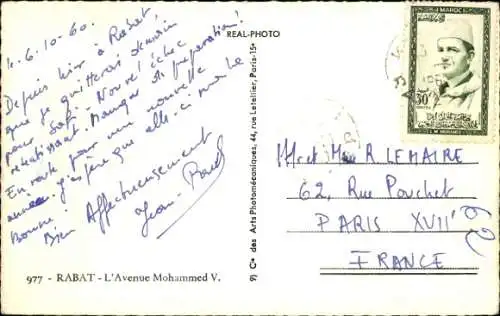 L. 6.10-60.
Depuis hier à Rabat
que je quitterai demain
pour Safi. Nouvel échec
retentissant. Manque de préparation!
En route pour une nouvelle
année. J'espère que celle-ci sera la
Bonne!
Bien Affectueusement
Jean
977 - RABAT - L'Avenue Mohammed V.
REAL-PHOTO
Cie des Arts Photomécaniques, 44, rue Letellier, Paris-15e
MAROC
30F
Mr et Mme R. LEMAIRE
62, Rue Pouchet
PARIS XVII°
FRANCE